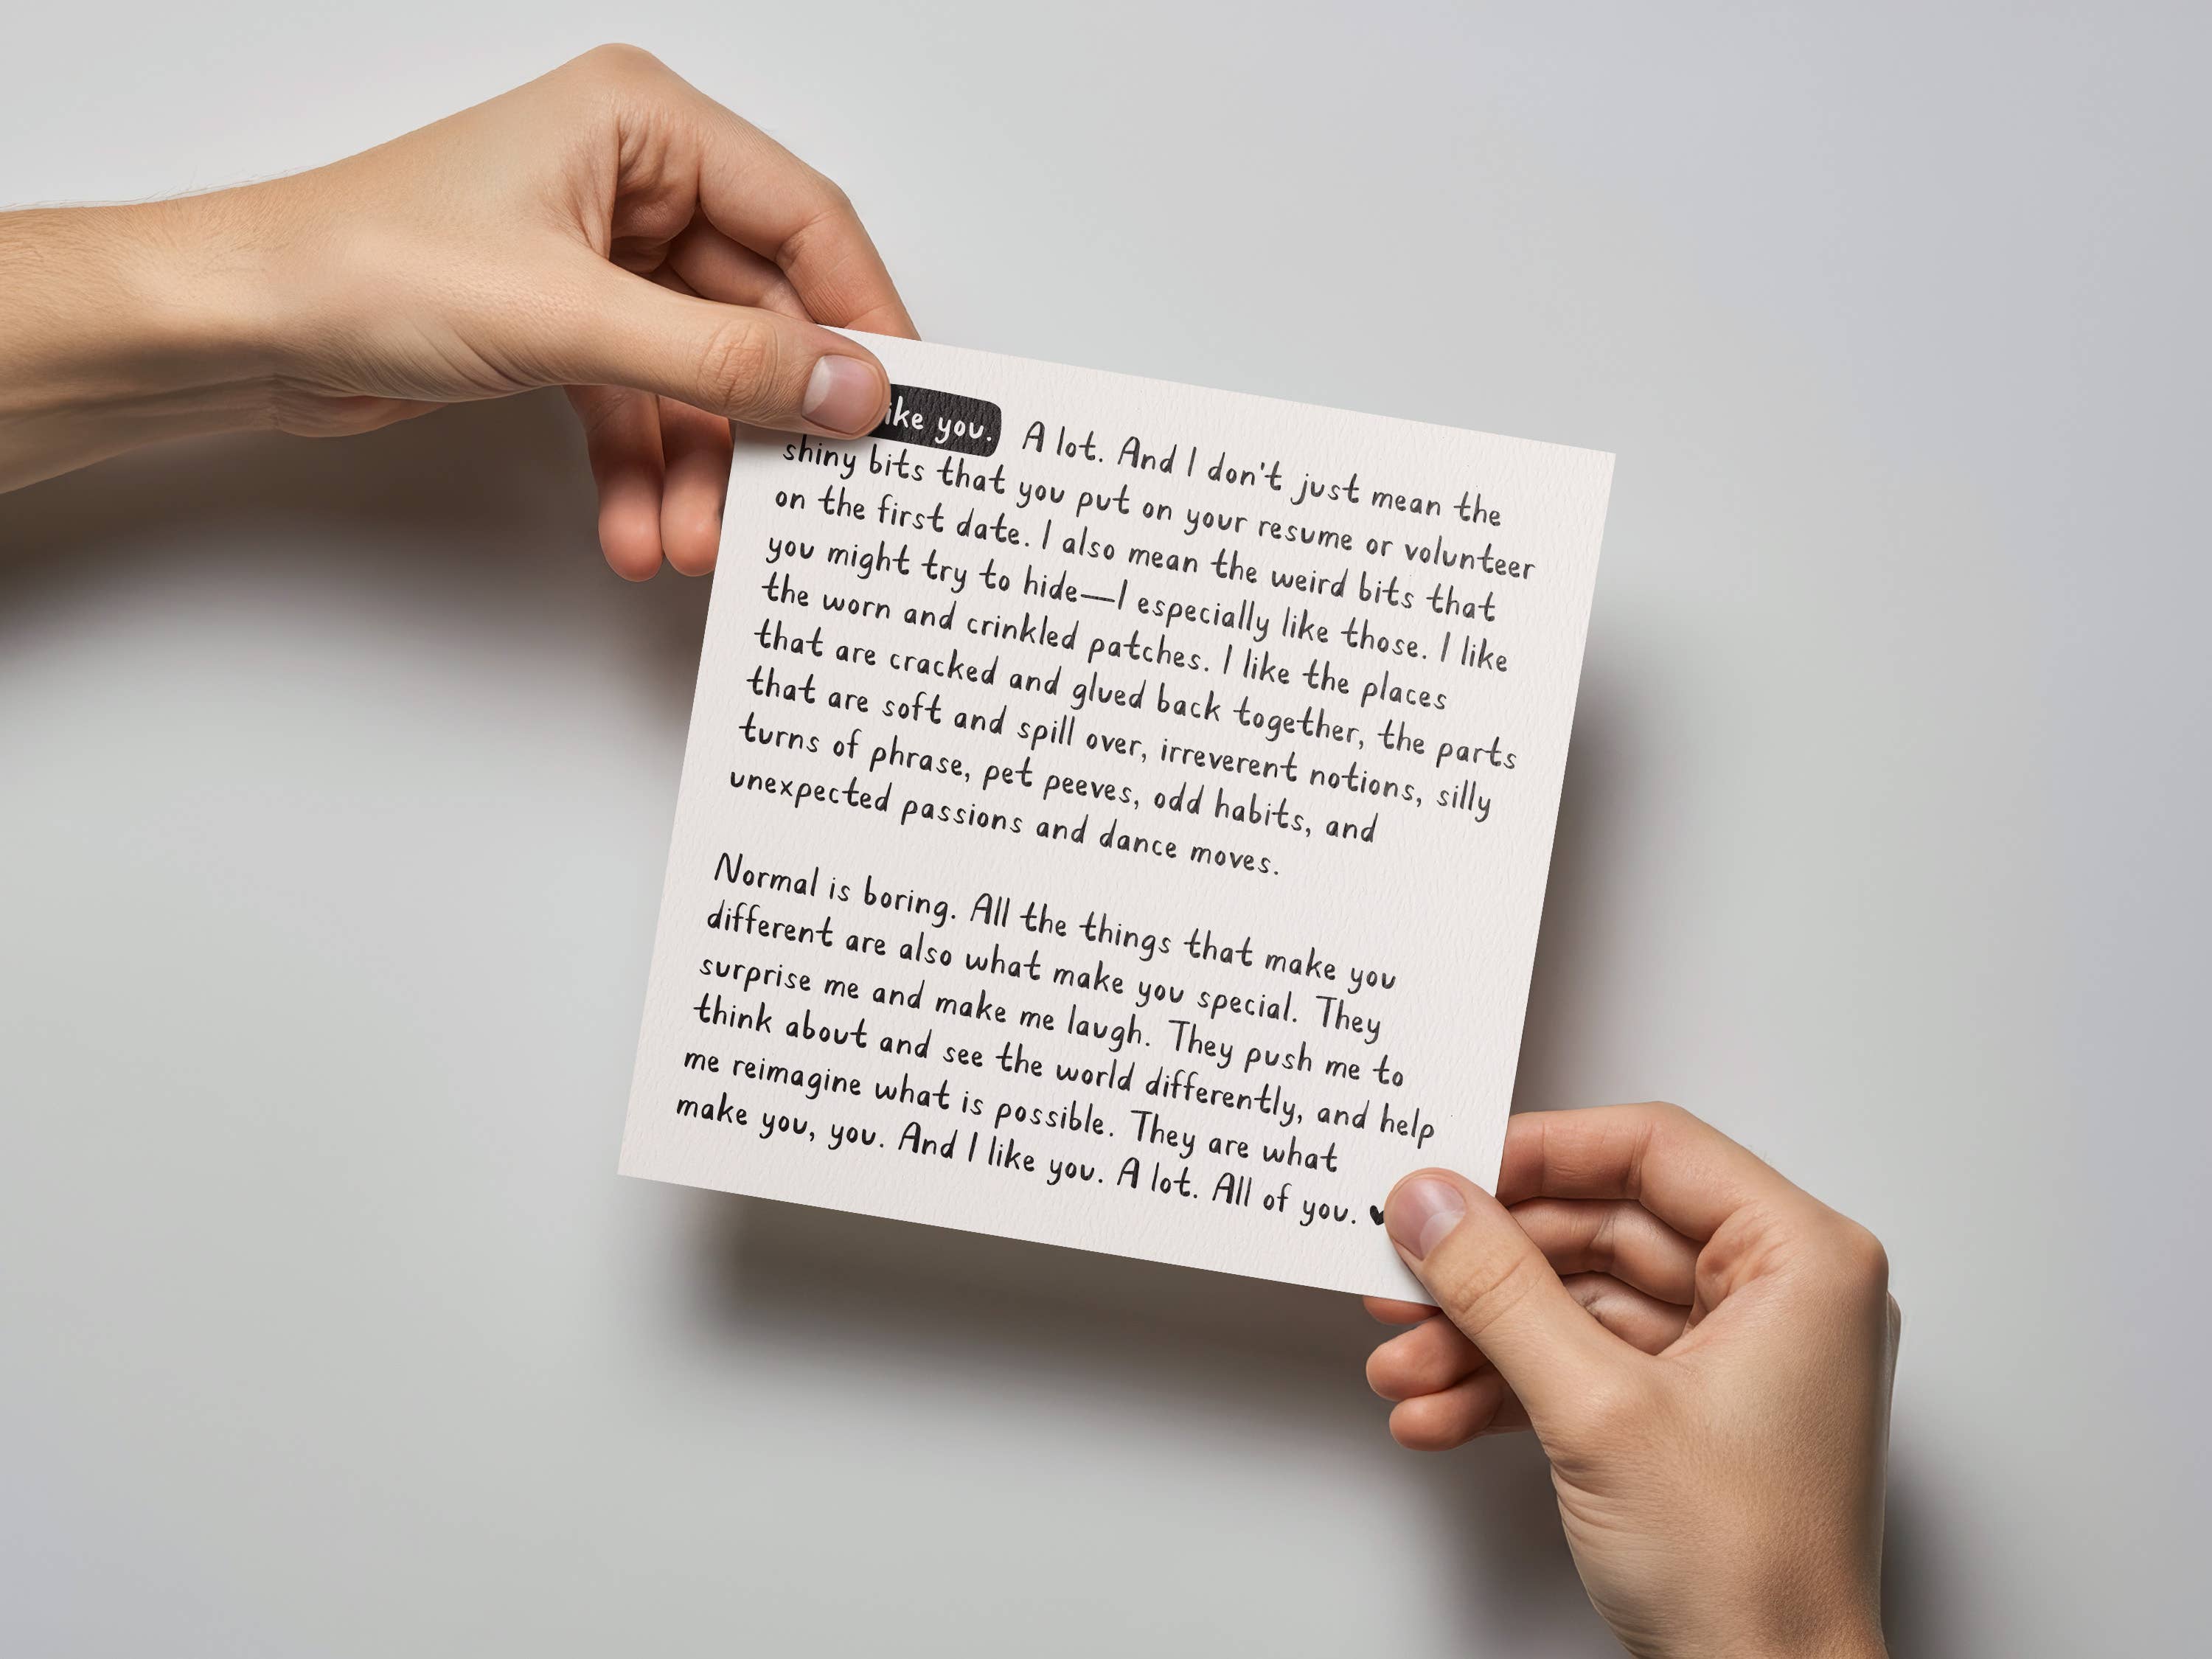 ike you. A lot. And I don't just mean the
shiny bits that you put on your resume or volunteer
on the first date. I also mean the weird bits that
you might try to hide—I especially like those. I like
the worn and crinkled patches. I like the places
that are cracked and glued back together, the parts
that are soft and spill over, irreverent notions, silly
turns of phrase, pet peeves, odd habits, and
unexpected passions and dance moves.
Normal is boring. All the things that make you
different are also what make you special. They
surprise me and make me laugh. They push me to
think about and see the world differently, and help
me reimagine what is possible. They are what
make you, you. And I like you. A lot. All of you. ♥